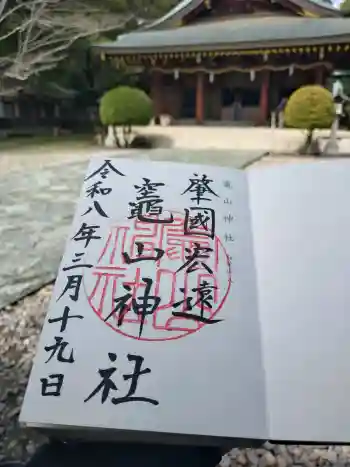 竈山神社
肇國宏遠
竈山神社
令和八年三月十九日